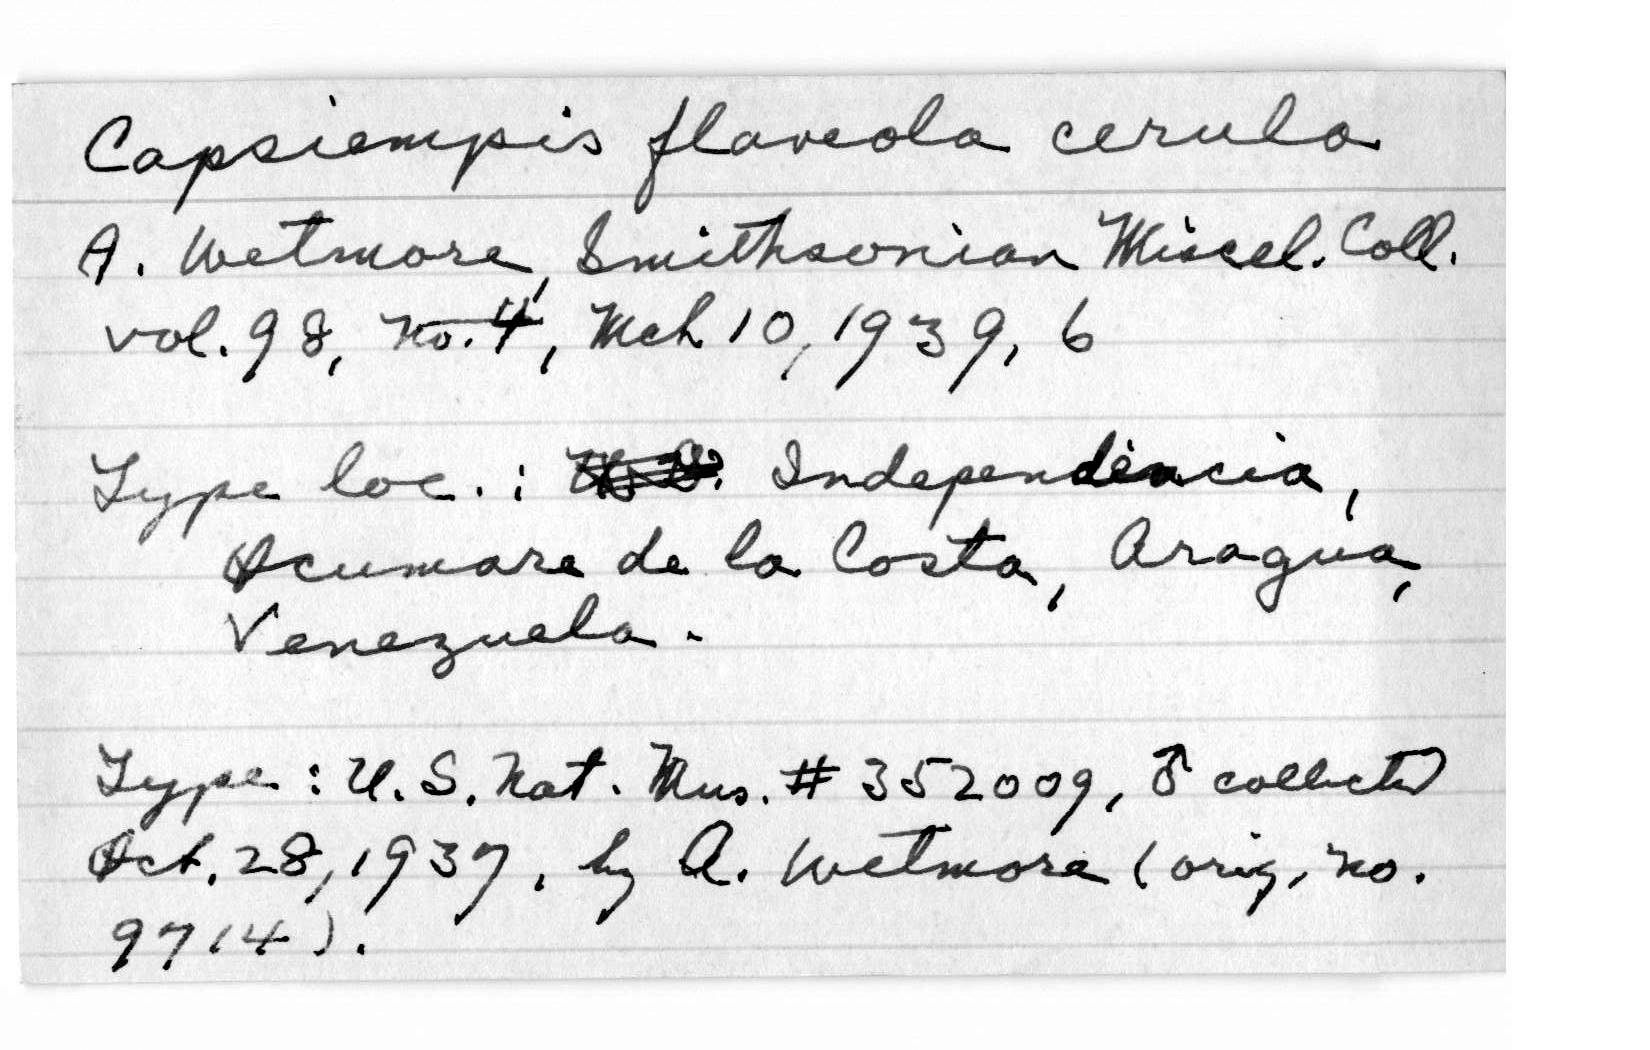 Capsiempis flaveola cerula
A. Wetmore, Smithsonian Miscel. Coll.
vol. 98, no. 4, Mch 10, 1939, 6
Type loc. : Independencia,
Ocumare de la Costa, Aragua,
Venezuela.
Type : U.S. Nat. Mus. # 352009, ♂ collected
Oct. 28, 1937, by A. Wetmore (orig. no.
9714).